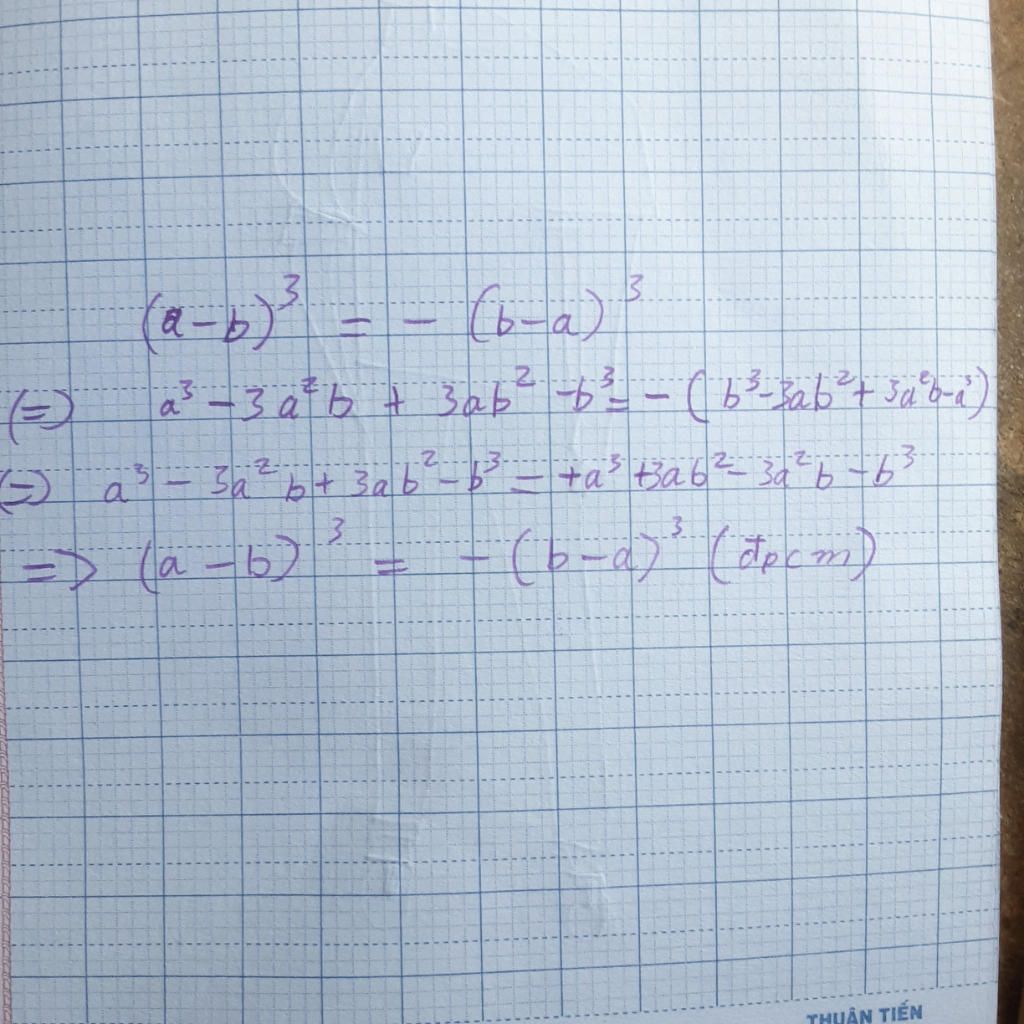 (a-b)³ = - (b-a)³
(=) a³ - 3a²b + 3ab² - b³ = - (b³ - 3ab² + 3a²b - a³)
(=) a³ - 3a²b + 3ab² - b³ = +a³ + 3ab² - 3a²b - b³
=> (a-b)³ = - (b-a)³ (đpcm)
THUẬN TIẾN